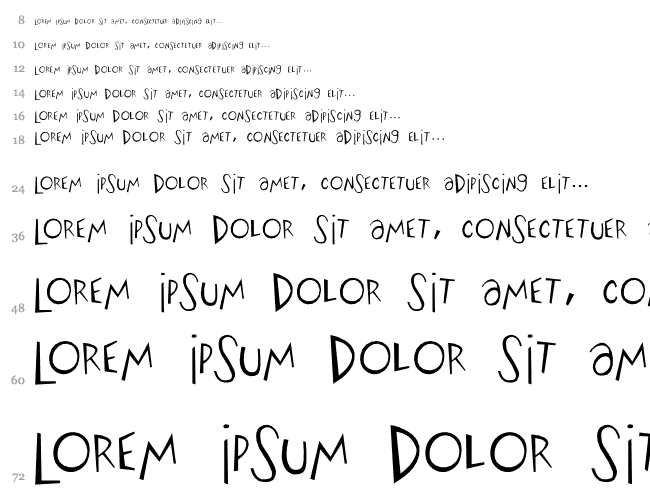 8 Lorem ipsum dolor sit amet, consectetuer adipiscing elit...
10 Lorem ipsum dolor sit amet, consectetuer adipiscing elit...
12 Lorem ipsum dolor sit amet, consectetuer adipiscing elit...
14 Lorem ipsum dolor sit amet, consectetuer adipiscing elit...
16 Lorem ipsum dolor sit amet, consectetuer adipiscing elit...
18 Lorem ipsum dolor sit amet, consectetuer adipiscing elit...
24 Lorem ipsum dolor sit amet, consectetuer adipiscing elit...
36 Lorem ipsum dolor sit amet, consectetuer
48 Lorem ipsum dolor sit amet, co
60 Lorem ipsum dolor sit am
72 Lorem ipsum dolor sit